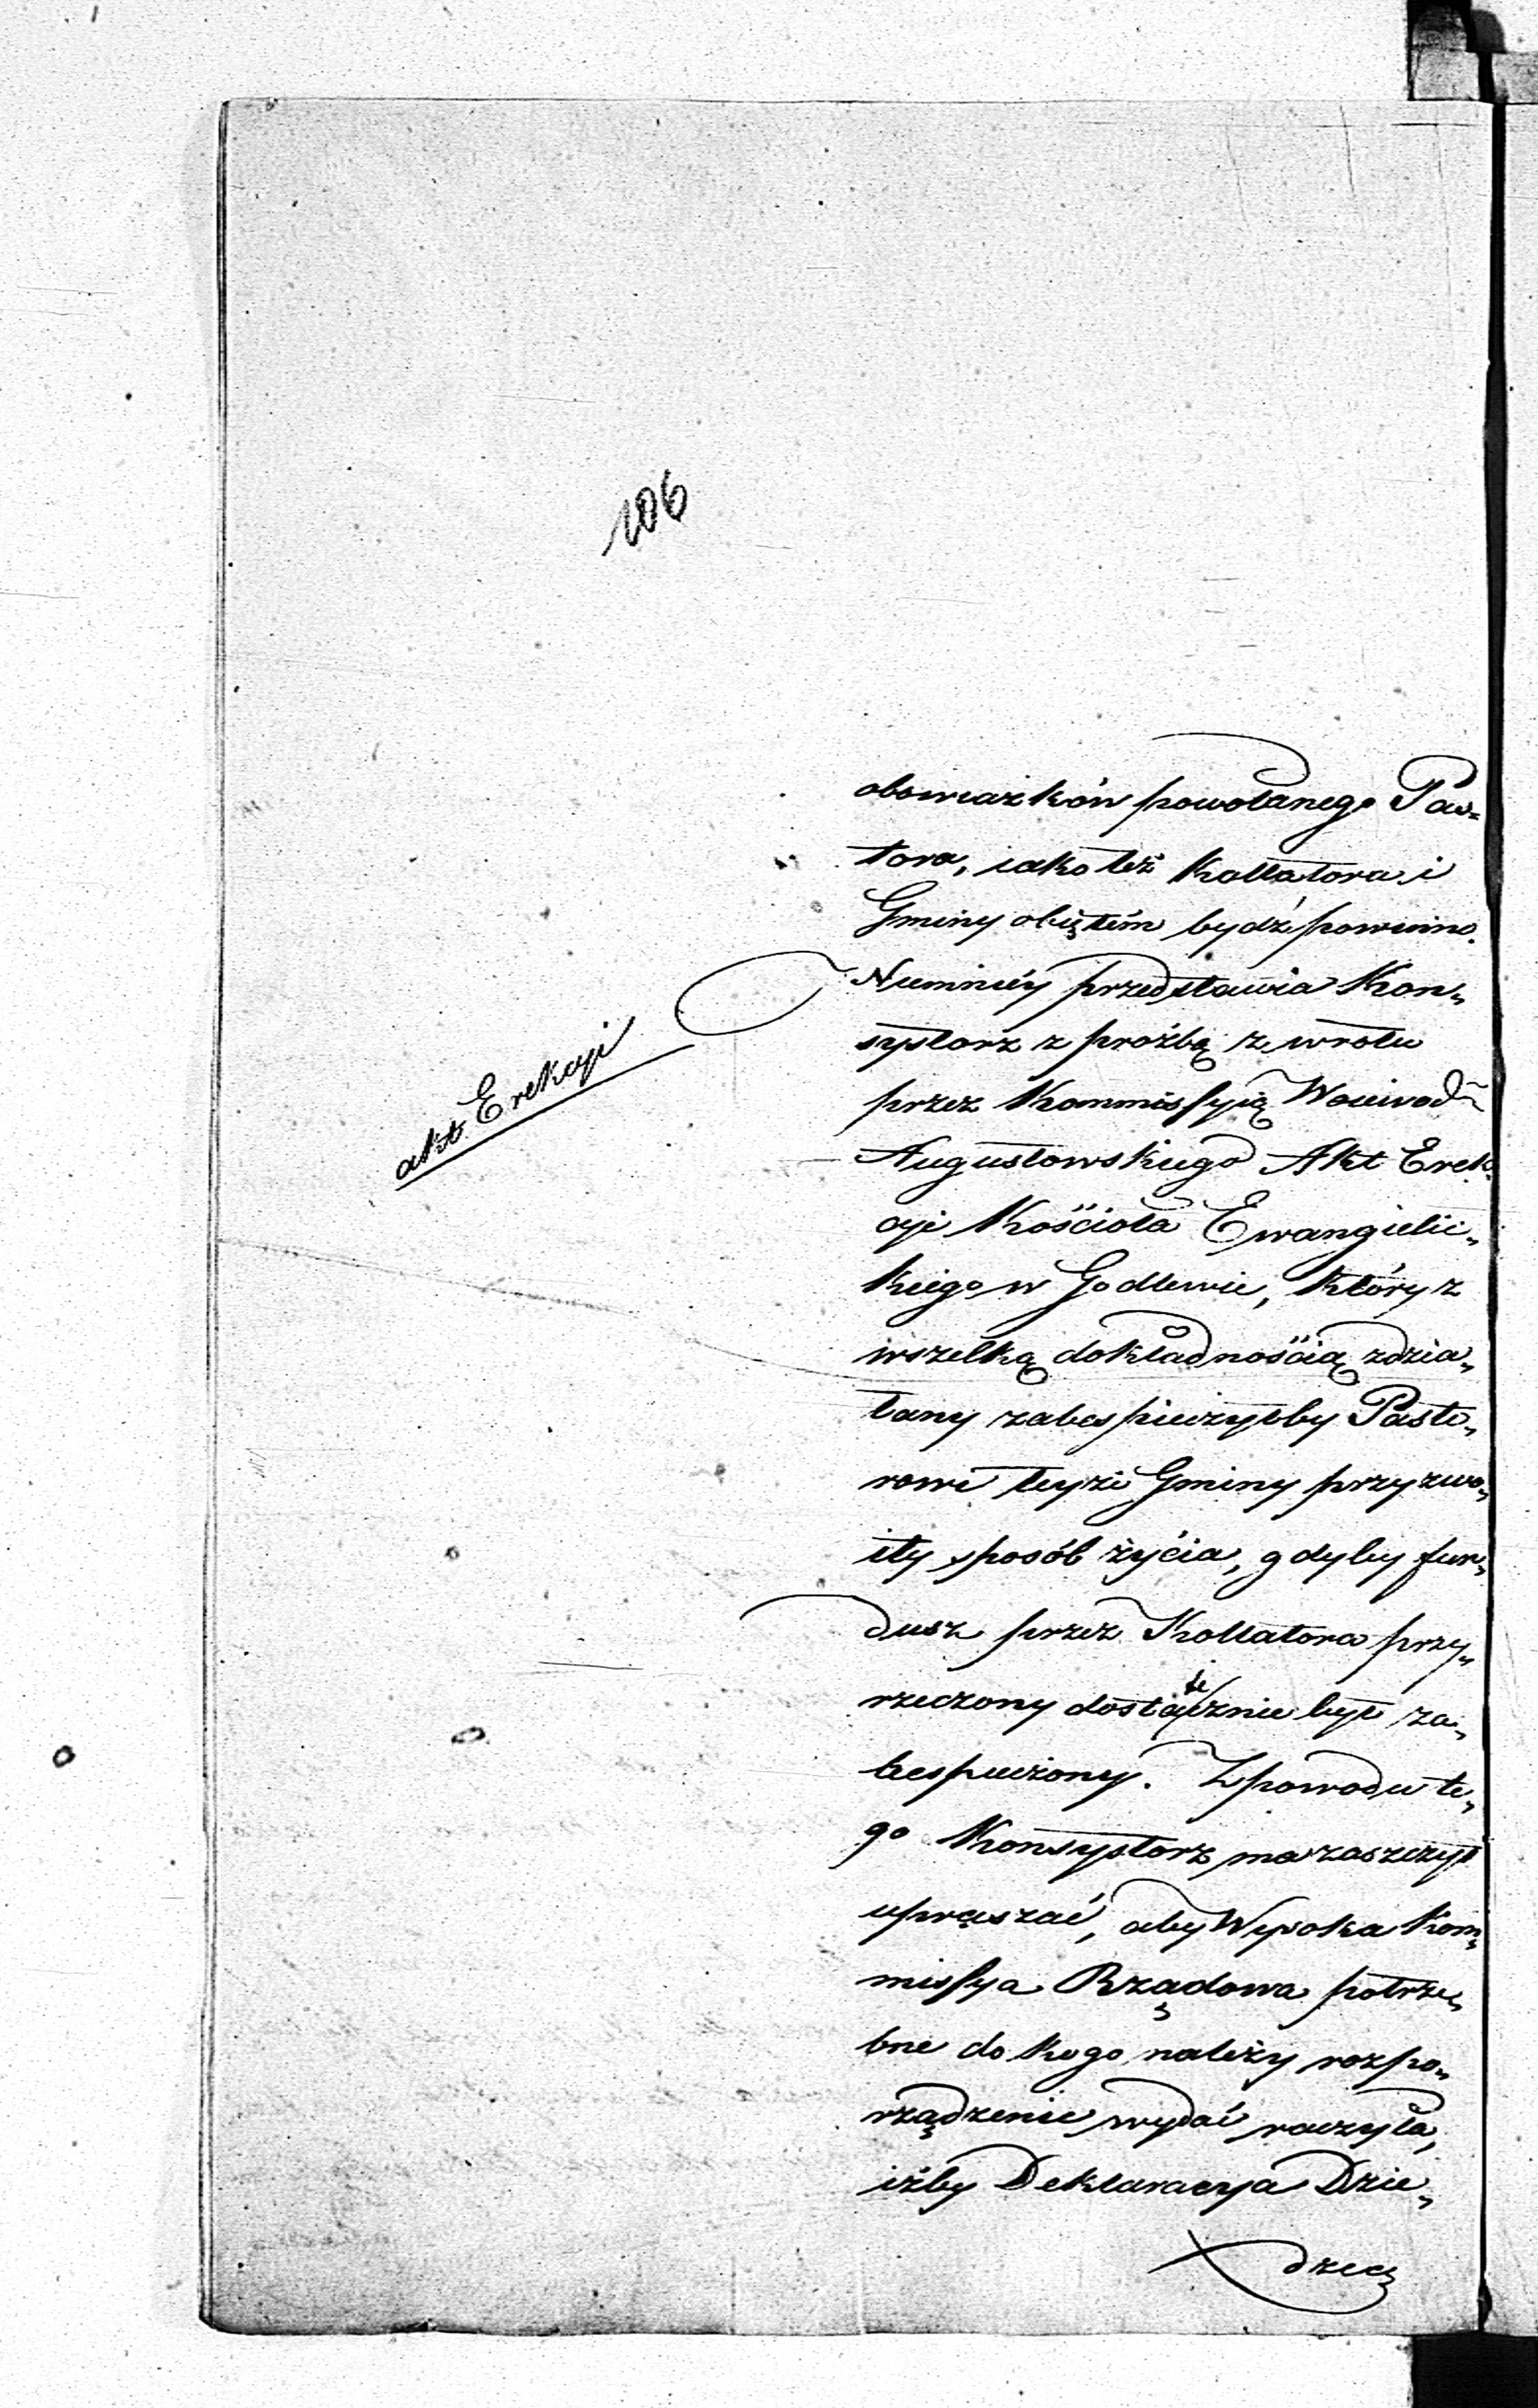 106
obowiazków powołanego Pas=
tora, iako też Kollatora i
Gminy obiętém bydź powinno.
Niemniéy przedstawia Kon„
systorz z prożbą zwrotu
przez Kommissyią Woiewod:
akt Erekcyi
Augustowskiego Akt Erek„
cyi Kościoła Ewangielic„
kiego w Godlewie, który z
wszelką dokładnością zdzia„
łany zabespieczyłby Pasto„
rowi teyże Gminy przyzwo„
ity sposób życia, gdyby fun„
dusz przez Kollatora przy„
rzeczony dostatecznie był za„
bespieczony. Z powodu te„
go Konsystorz ma zaszczyt
upraszać, aby Wysoka Kom„
missya Rządowa potrze„
bne do kogo należy rozpo„
rządzenie wydać raczyła,
iżby Deklaracya Dzie„
dzica